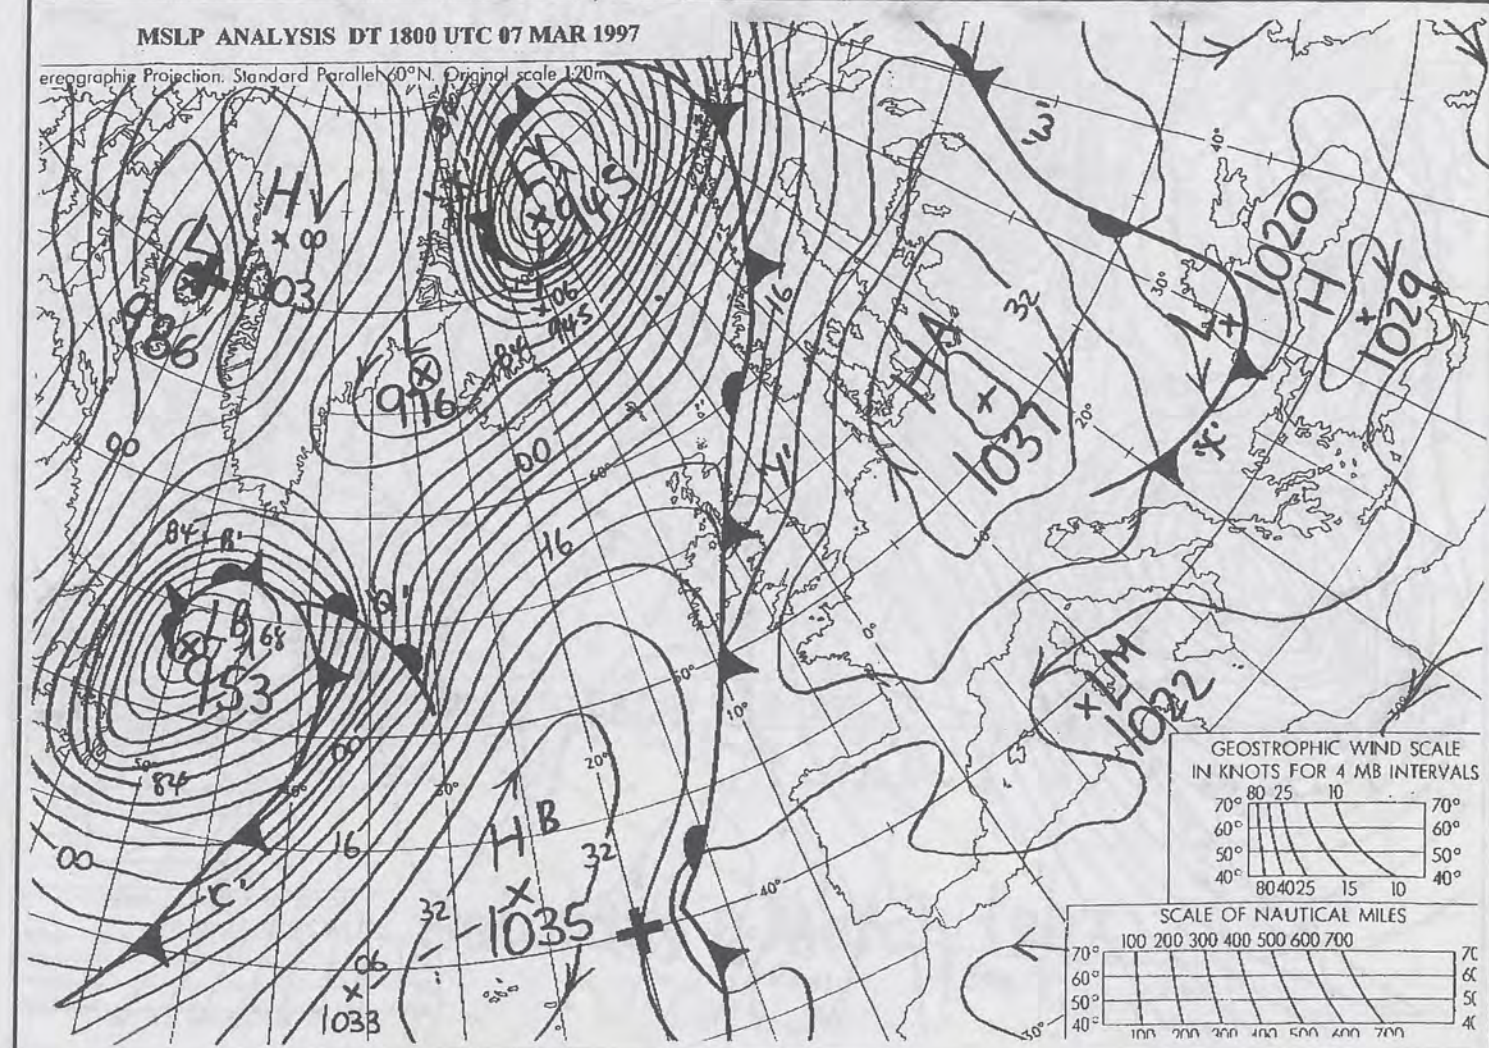 MSLP ANALYSIS DT 1800 UTC 07 MAR 1997
ereographic Projection. Standard Parallel 60°N. Original scale 1:20m
'W'
40°
H
L
945
× 00
1003
986
06
945
84
976
16
32
HA
1037
1020
H
1029
30°
L
20°
'X'
00
00
60°
'Y'
16
10°
84
'R'
'Q'
L B
968
953
0°
50°
10°
LM
1022
50°
84
00
40°
30°
20°
30°
H B
16
32
32
1035
00
'C'
40°
06
1033
30°
GEOSTROPHIC WIND SCALE
IN KNOTS FOR 4 MB INTERVALS
80 25 10
70° 70°
60° 60°
50° 50°
40° 40°
80 40 25 15 10
SCALE OF NAUTICAL MILES
100 200 300 400 500 600 700
70°
60°
50°
40°
100 200 300 400 500 600 700